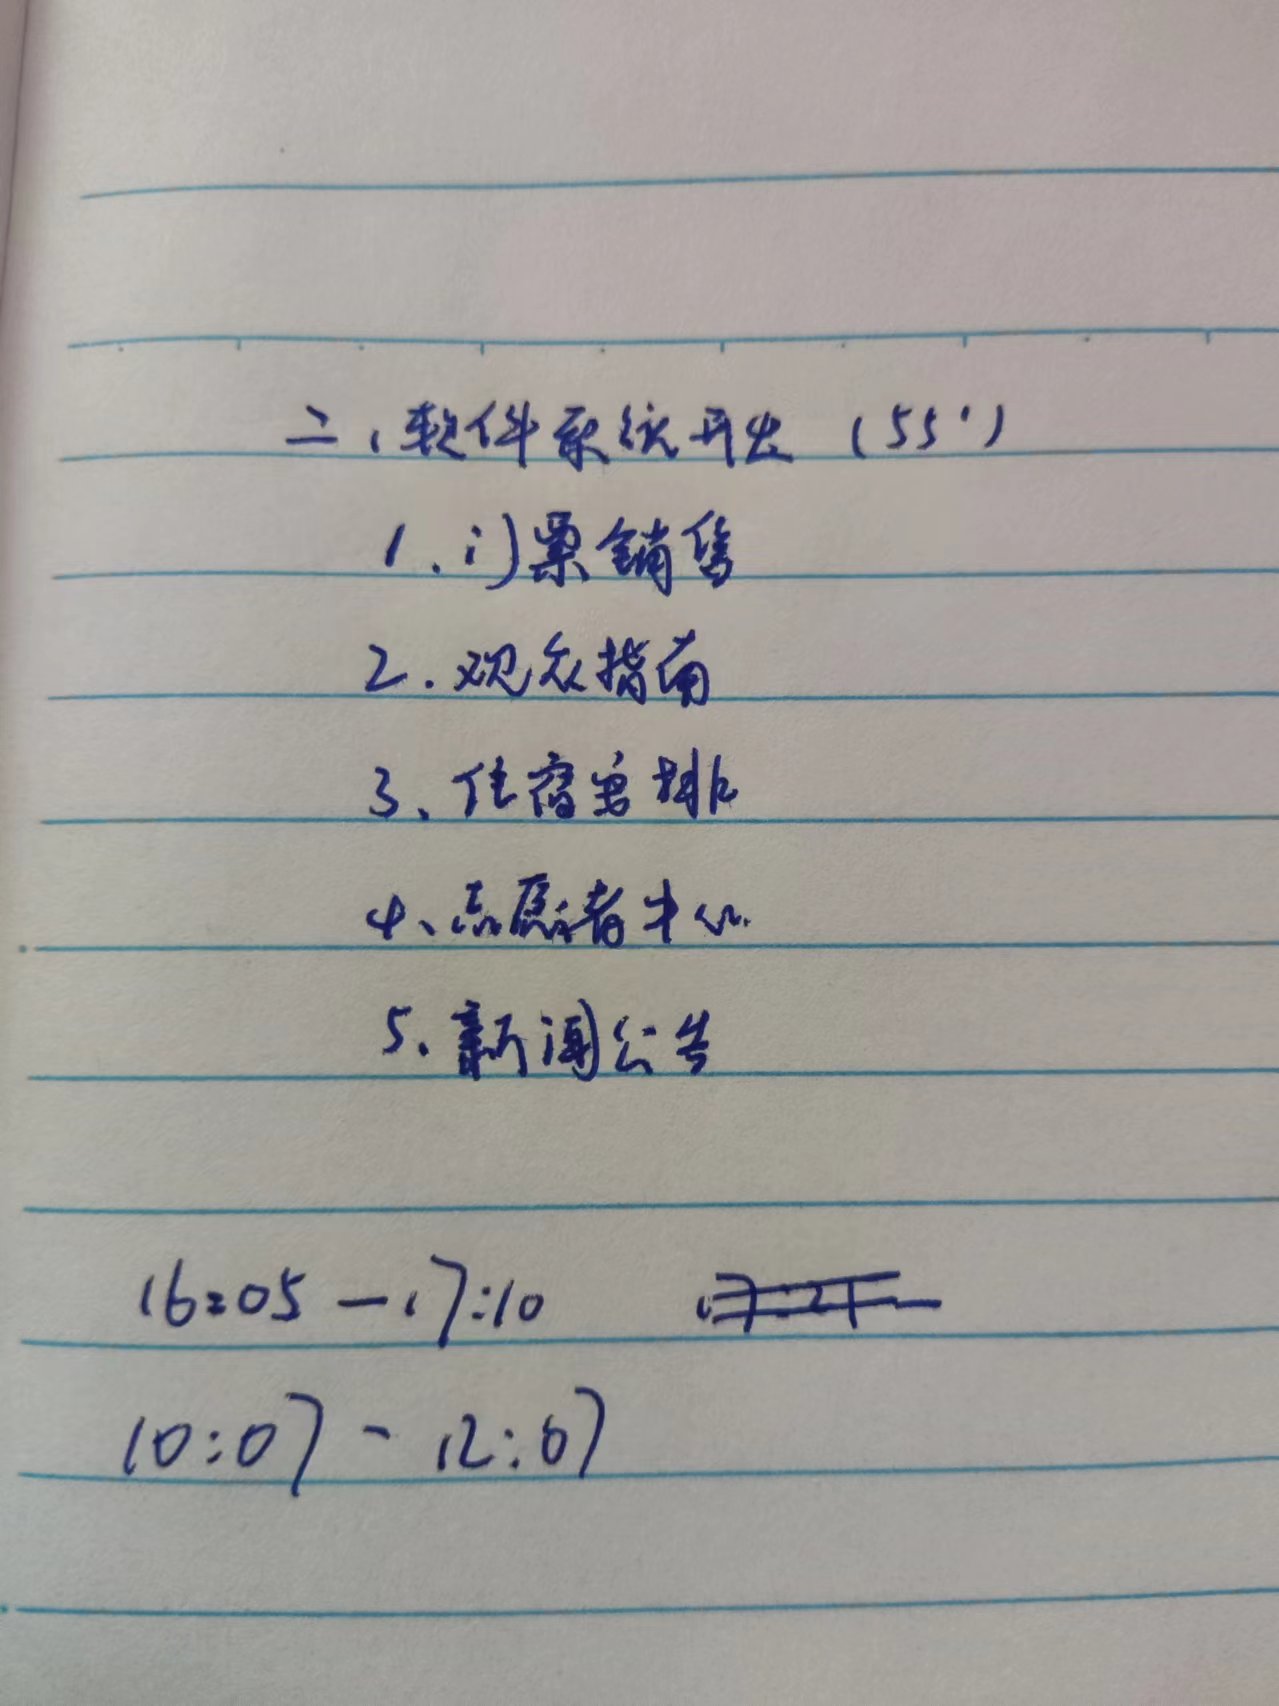 二、软件系统开发 (55')
1. 门票销售
2. 观众指南
3、住宿安排
4、志愿者中心
5. 新闻公告
16:05 — 17:10
10:07 - 12:07